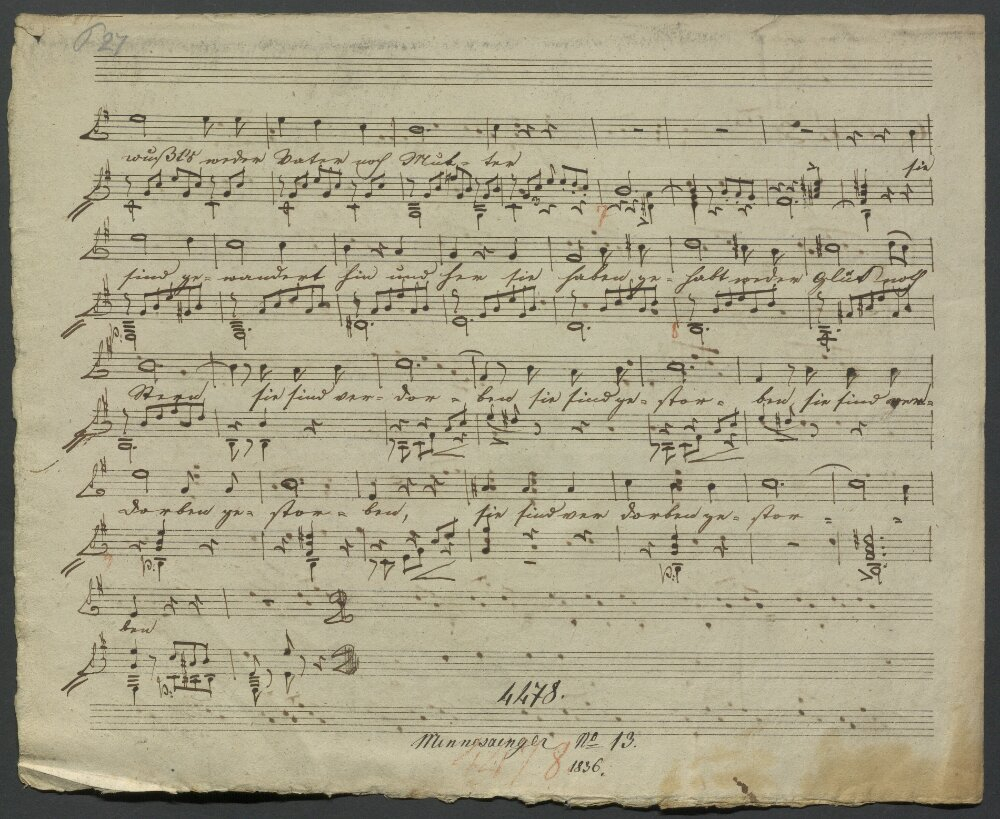 27
wußt's weder Vater noch Mut- ter
sie
sind ge- wandert hin und her sie haben ge- habt weder Glük noch
Stern sie sind ver- dor- ben sie sind ge- stor- ben, sie sind ver-
dorben ge- stor- ben, sie sind ver dorben ge- stor - -
ben
4478.
Minnesaenger No 13.
1836.